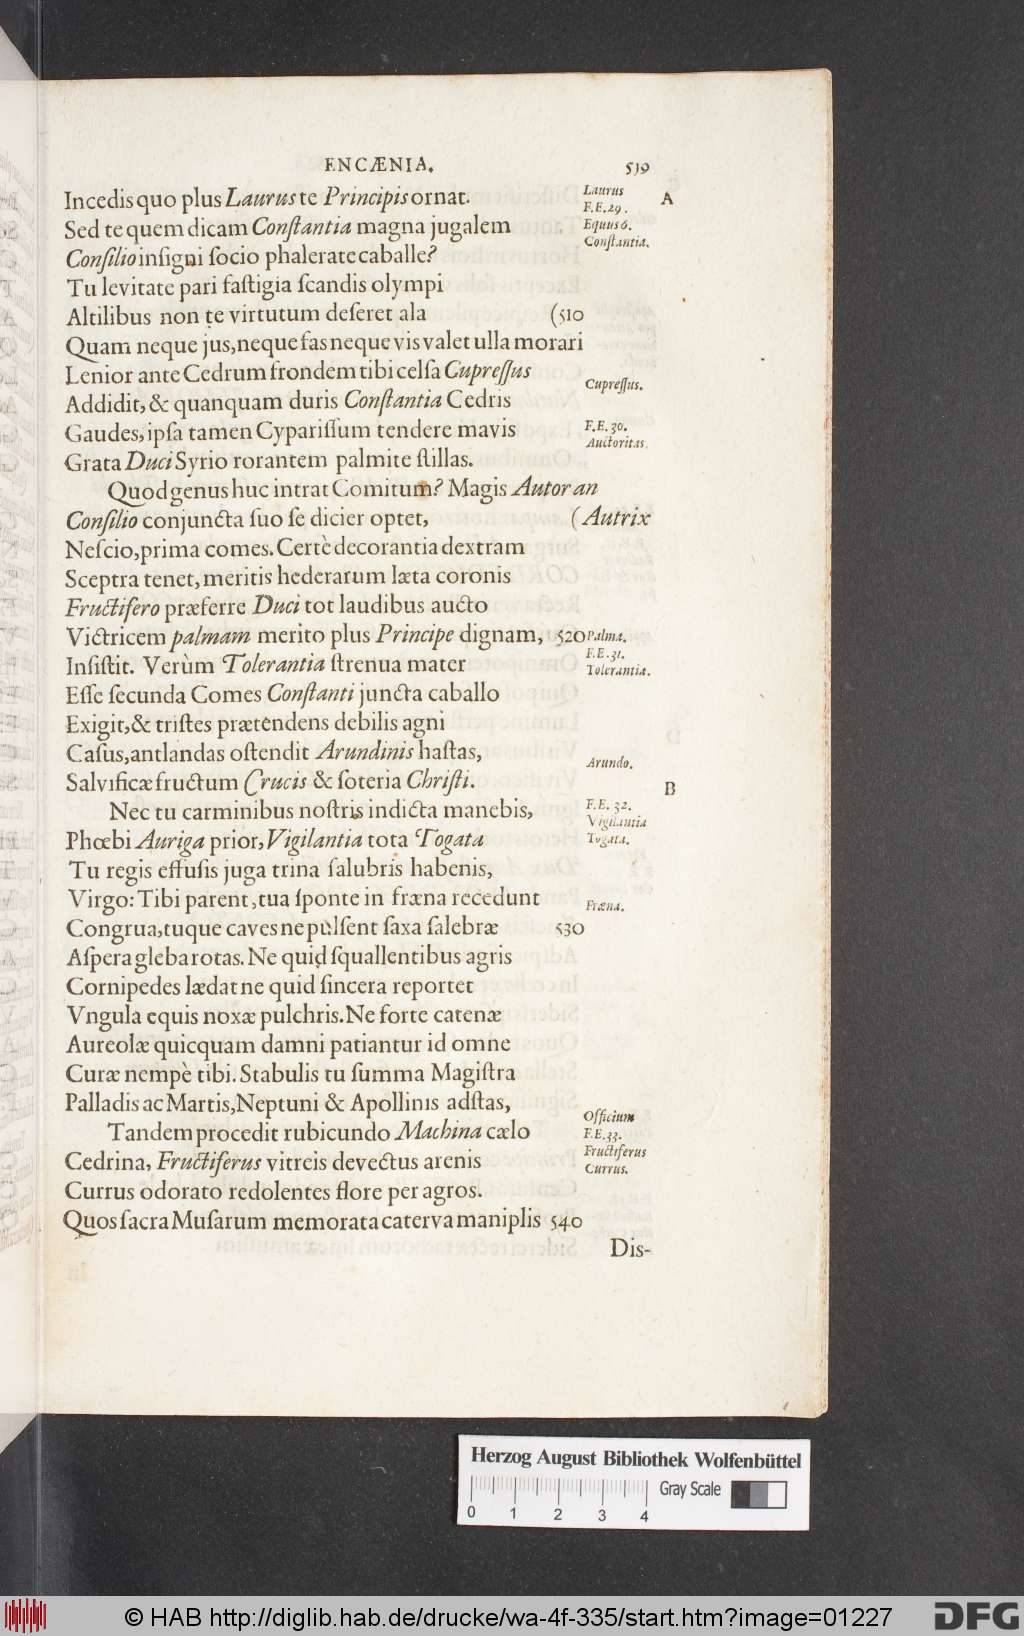 ENCÆNIA. 539
Incedis quo plus Laurus te Principis ornat. Laurus A
F.E.29.
Sed te quem dicam Conſtantia magna jugalem Equus 6.
Conſtantia.
Conſilio inſigni ſocio phalerate caballe?
Tu levitate pari faſtigia ſcandis olympi
Altilibus non te virtutum deſeret ala (510
Quam neque jus, neque fas neque vis valet ulla morari
Lenior ante Cedrum frondem tibi celſa Cupreſſus
Cupreſſus.
Addidit, & quanquam duris Conſtantia Cedris
Gaudes, ipſa tamen Cypariſſum tendere mavis F.E.30.
Auctoritas.
Grata Duci Syrio rorantem palmite ſtillas.
Quod genus huc intrat Comitum? Magis Autor an
Conſilio conjuncta ſuo ſe dicier optet, (Autrix
Neſcio, prima comes. Certè decorantia dextram
Sceptra tenet, meritis hederarum læta coronis
Fructifero præferre Duci tot laudibus aucto
Victricem palmam merito plus Principe dignam, 520 Palma.
F.E.31.
Inſiſtit. Verùm Tolerantia ſtrenua mater Tolerantia.
Eſſe ſecunda Comes Conſtanti juncta caballo
Exigit, & triſtes prætendens debilis agni
Caſus, antlandas oſtendit Arundinis haſtas,
Arundo.
Salvificæ fructum Crucis & ſoteria Chriſti. B
Nec tu carminibus noſtris indicta manebis, F.E. 32.
Vigilantia
Phœbi Auriga prior, Vigilantia tota Togata Togata.
Tu regis effuſis juga trina ſalubris habenis,
Virgo: Tibi parent, tua ſponte in fræna recedunt
Fræna.
Congrua, tuque caves ne pulſent ſaxa ſalebræ 530
Aſpera gleba rotas. Ne quid ſquallentibus agris
Cornipedes lædat ne quid ſincera reportet
Vngula equis noxæ pulchris. Ne forte catenæ
Aureolæ quicquam damni patiantur id omne
Curæ nempè tibi. Stabulis tu ſumma Magiſtra
Palladis ac Martis, Neptuni & Apollinis adſtas,
Officium
Tandem procedit rubicundo Machina cælo F.E.33.
Fructiferus
Cedrina, Fructiferus vitreis devectus arenis Currus.
Currus odorato redolentes flore per agros.
Quos ſacra Muſarum memorata caterva maniplis 540
Dis-
Herzog August Bibliothek Wolfenbüttel
Gray Scale
0 1 2 3 4
© HAB http://diglib.hab.de/drucke/wa-4f-335/start.htm?image=01227 DFG